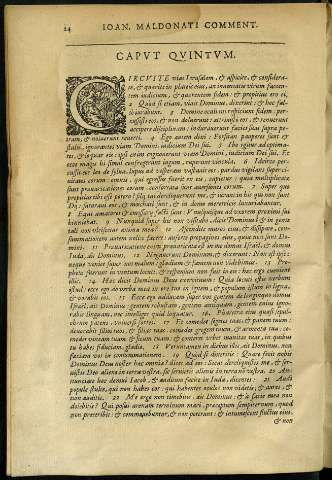 24 IOAN. MALDONATI COMMENT.
CAPVT QVINTVM.
CIRCVITE vias Ierusalem, & aspicite, & considera-
te, & quærite in plateis eius, an inueniatis virum facien-
tem iudicium, & quærentem fidem: & propitius ero ei.
2 Quòd si etiam, viuit Dominus, dixerint: & hoc fal-
sò iurabunt. 3 Domine oculi tui respiciunt fidem: per-
cussisti eos, & non doluerunt: attriuisti eos, & renuerunt
accipere disciplinam: indurauerunt facies suas supra pe-
tram, & noluerunt reuerti. 4 Ego autem dixi: Forsitan pauperes sunt &
stulti, ignorantes viam Domini, iudicium Dei sui. 5 Ibo igitur ad optima-
tes, & loquar eis: ipsi enim cognouerunt viam Domini, iudicium Dei sui. Et
ecce magis hi simul confregerunt iugum, ruperunt vincula. 6 Idcirco per-
cussit eos leo de silua, lupus ad vesperam vastauit eos, pardus vigilans super ci-
uitates eorum: omnis qui egressus fuerit ex eis, capietur: quia multiplicatæ
sunt præuaricationes eorum, confortatæ sunt auersiones eorum. 7 Super quo
propitius tibi esse potero? filij tui dereliquerunt me, & iurant in his qui non sunt
Dij: saturaui eos, & mœchati sunt, & in domo meretricis luxuriabantur.
8 Equi amatores & emissarij facti sunt: Vnusquisque ad vxorem proximi sui
hinniebat. 9 Nunquid super his non visitabo, dicit Dominus? & in gente
tali non vlciscetur anima mea? 10 Ascendite muros eius, & dissipate, con-
summationem autem nolite facere: auferte propagines eius, quia non sunt Do-
mini. 11 Præuaricatione enim præuaricata est in me domus Israël, & domus
Iuda, ait Dominus. 12 Negauerunt Dominum, & dixerunt: Non est ipse:
neque veniet super nos malum: gladium & famem non videbimus. 13 Pro-
phetæ fuerunt in ventum locuti, & responsum non fuit in eis: hæc ergo euenient
illis. 14 Hæc dicit Dominus Deus exercituum: Quia locuti estis verbum
istud: ecce ego do verba mea in ore tuo in ignem, & populum istum in ligna,
& vorabit eos. 15 Ecce ego adducam super vos gentem de longinquo domus
Israël, ait Dominus: gentem robustam, gentem antiquam, gentem cuius igno-
rabis linguam, nec intelliges quid loquatur. 16 Pharetra eius quasi sepul-
chrum patens, vniuersi fortes. 17 Et comedet segetes tuas, & panem tuum:
deuorabit filios tuos, & filias tuas: comedet gregem tuum, & armenta tua: co-
medet vineam tuam & ficum tuam: & conteret vrbes munitas tuas, in quibus
tu habes fiduciam, gladio. 18 Veruntamen in diebus illis, ait Dominus, non
faciam vos in consummationem. 19 Quòd si dixeritis: Quare fecit nobis
Dominus Deus noster hæc omnia? dices ad eos: Sicut dereliquistis me, & ser-
uistis Deo alieno in terra vestra, sic seruietis alienis in terra non vestra. 20 An-
nunciate hoc domui Iacob, & auditum facite in Iuda, dicentes: 21 Audi
popule stulte, qui non habes cor: qui habentes oculos non videtis, & aures, &
non auditis. 22 Me ergo non timebitis, ait Dominus: & à facie mea non
dolebitis? Qui posui arenam terminum mari, præceptum sempiternum, quod
non præteribit: & commouebuntur, & non poterunt: & intumescent fluctus eius,
& non